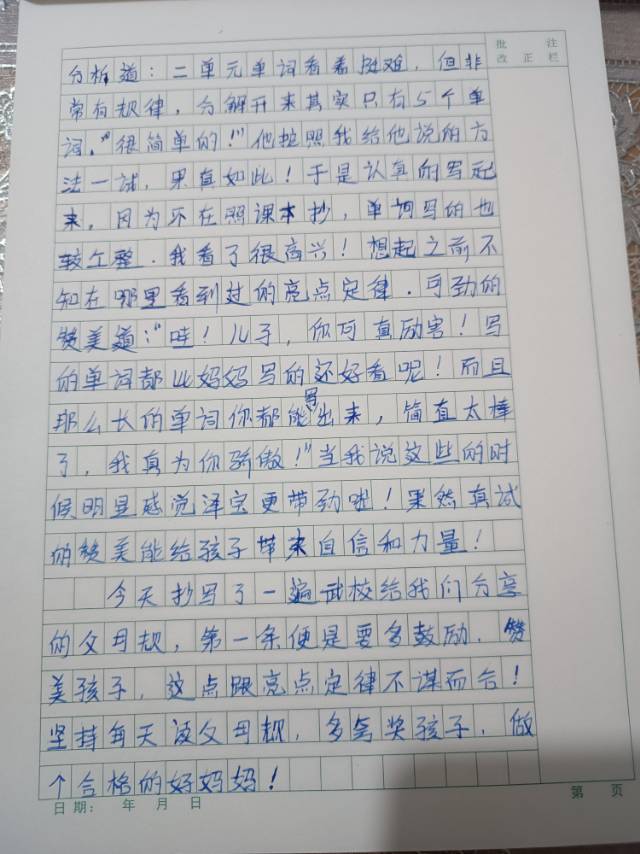 批 注
改 正 栏
分析道：二单元单词看着挺难，但非
常有规律，分解开来其实只有5个单
词，“很简单的！”他按照我给他说的方
法一试，果真如此！于是认真的写起
来，因为不在照课本抄，单词写的也
较工整．我看了很高兴！想起之前不
知在哪里看到过的亮点定律．可劲的
赞美道：“哇！儿子，你可真励害！写
的单词都比妈妈写的还好看呢！而且
那么长的单词你都能写出来，简直太棒
了，我真为你骄傲！”当我说这些的时
候明显感觉泽宝更带劲啦！果然真试
的赞美能给孩子带来自信和力量！
今天抄写了一遍武校给我们分享
的父母规，第一条便是要多鼓励．赞
美孩子，这点跟亮点定律不谋而合！
坚持每天读父母规，多夸奖孩子．做
个合格的好妈妈！
日期： 年 月 日
第 页